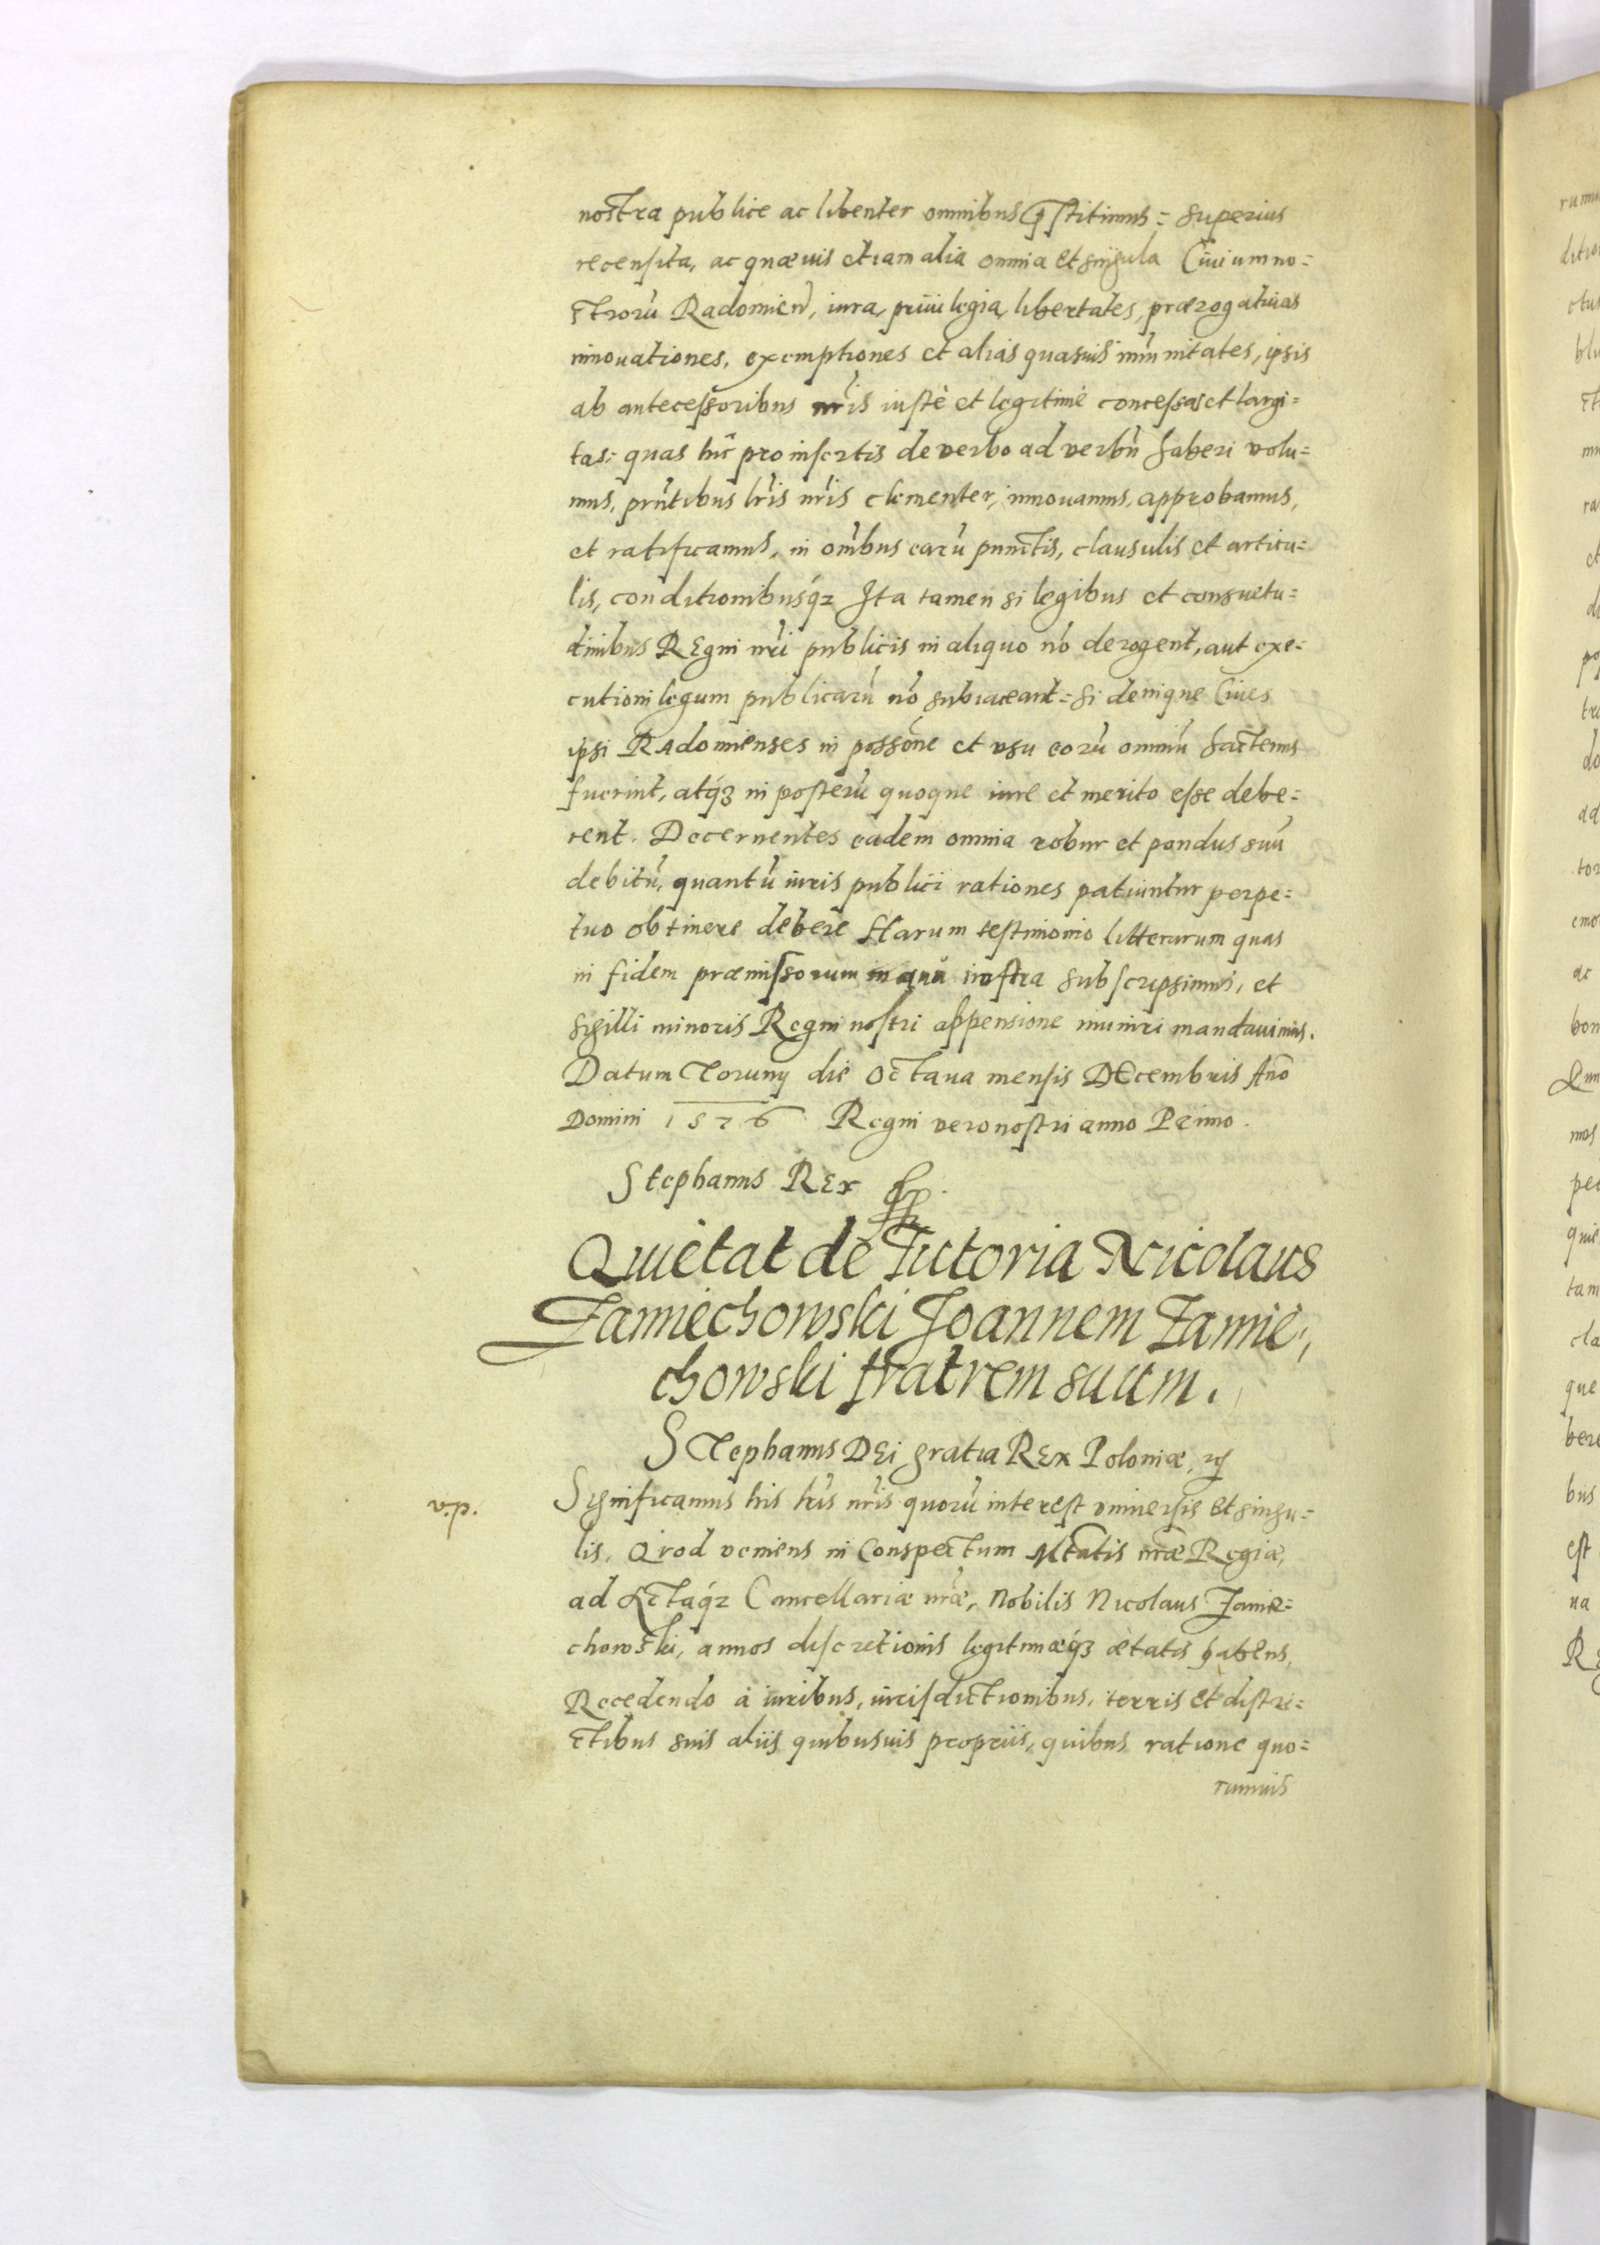 nostra publice ac libenter omnibus pręstitimus = superius
recensita, ac quæuis etiam alia omnia et singula Ciuium no=
stroru Radomien, iura, priuilegia, libertates, prærogatiuas
innouationes, exemptiones et alias quasuis imunitates, ipsis
ab antecessoribus nris iustè et legitimè concessas et largi=
tas: quas hic pro insertis de verbo ad verbu haberi volu=
mus, pntibus lris nris clementer, innouamus, approbamus,
et ratificamus, in omibus earu punctis, clausulis et articu=
lis, conditionibusqz Ita tamen si legibus et consuetu=
dinibus REgni nri publicis in aliquo no derogent, aut exe=
cutioni legum publicaru no subiaceant = si denique Ciues
ipsi RAdomienses in possone et vsu eoru omniu hactenus
fuerint, atqz in posteru quoque iure et merito esse debe=
rent. Decernentes eadem omnia robur et pondus suu
debitu, quantu iuris publici rationes patiuntur perpe=
tuo obtinere debere Harum testimonio litterarum quas
in fidem præmissorum manu nostra subscripsimus, et
sigilli minoris Regni nostri appensione muniri mandauimus.
Datum Toruny die Octaua mensis DEcembris Ano
Domini 1576 Regni vero nostri anno Primo.
Stephanus REx
Quietat de Tutoria Nicolaus
Zamiechowski Joannem Zamie,
chowski fratrem suum.
STephanus DEi gratia REx Poloniæ, rc
v.p. Significamus his lris nris quoru interest vniuersis et singu=
lis, Quod veniens in Conspectum Mtatis nræ Regiæ,
ad ACtaqz Cancellariæ nræ, Nobilis Nicolaus Zamie=
chowski, annos discretionis legitimæqz ætatis habens,
Recedendo à iuribus, iurisdictionibus, terris et distri=
ctibus suis aliis quibusuis propriis, quibus ratione quo=
rumuis